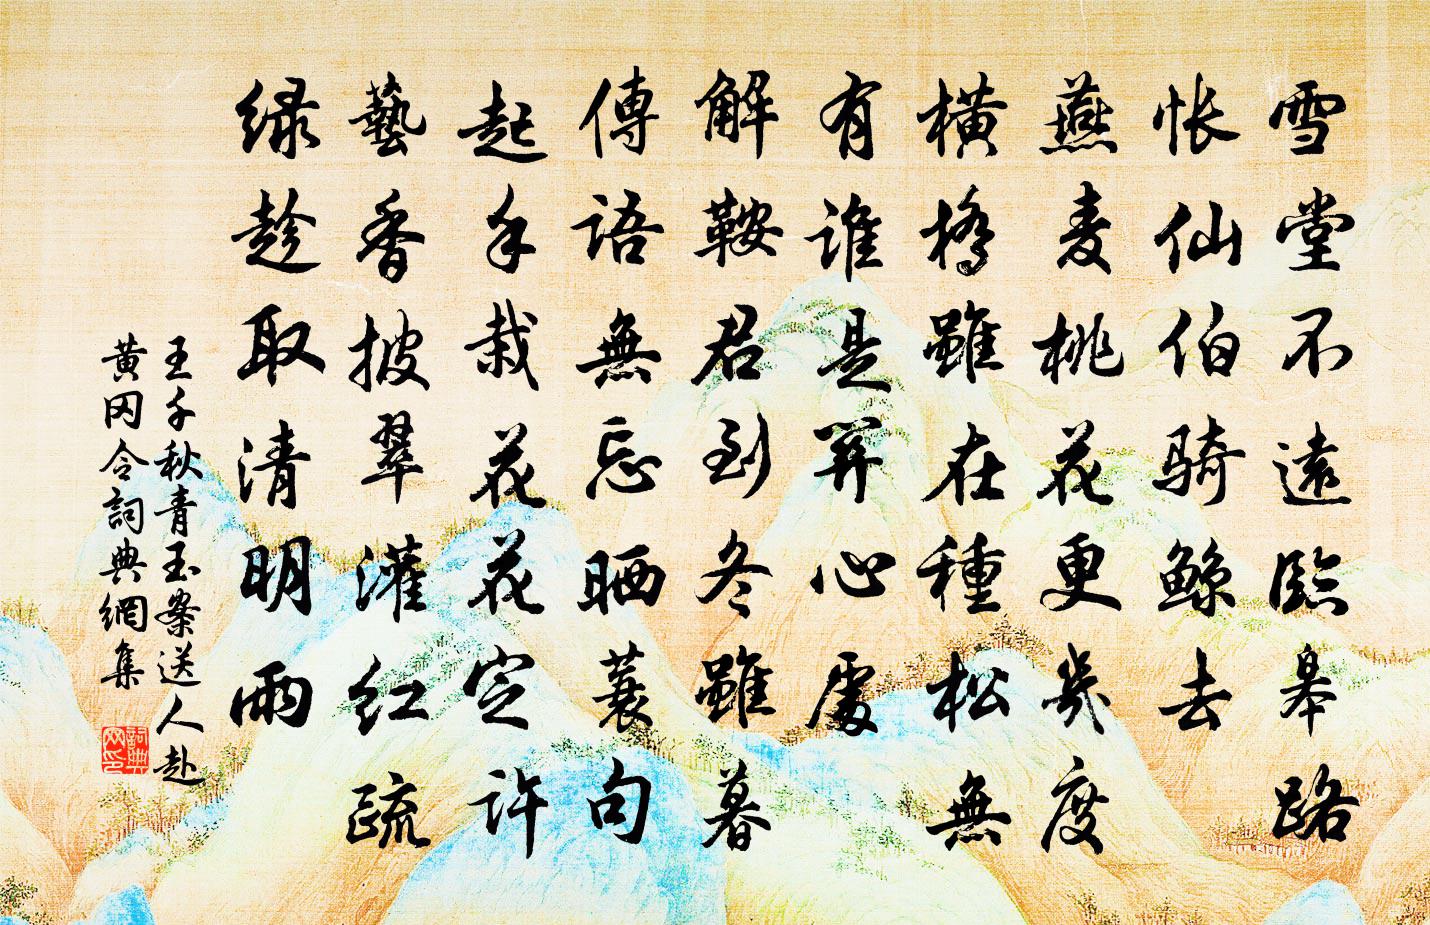 雪堂不遠臨皋路
怅仙伯骑鲸去
燕麦桃花更幾度
横橋雖在種松無
有誰是關心處
解鞍君到冬雖暮
傳語無忘晒蓑句
起手栽花花定许
藝香披翠灌红疏
绿趁取清明雨
王千秋青玉案送人赴
黄冈令詞典網集
詞典网印